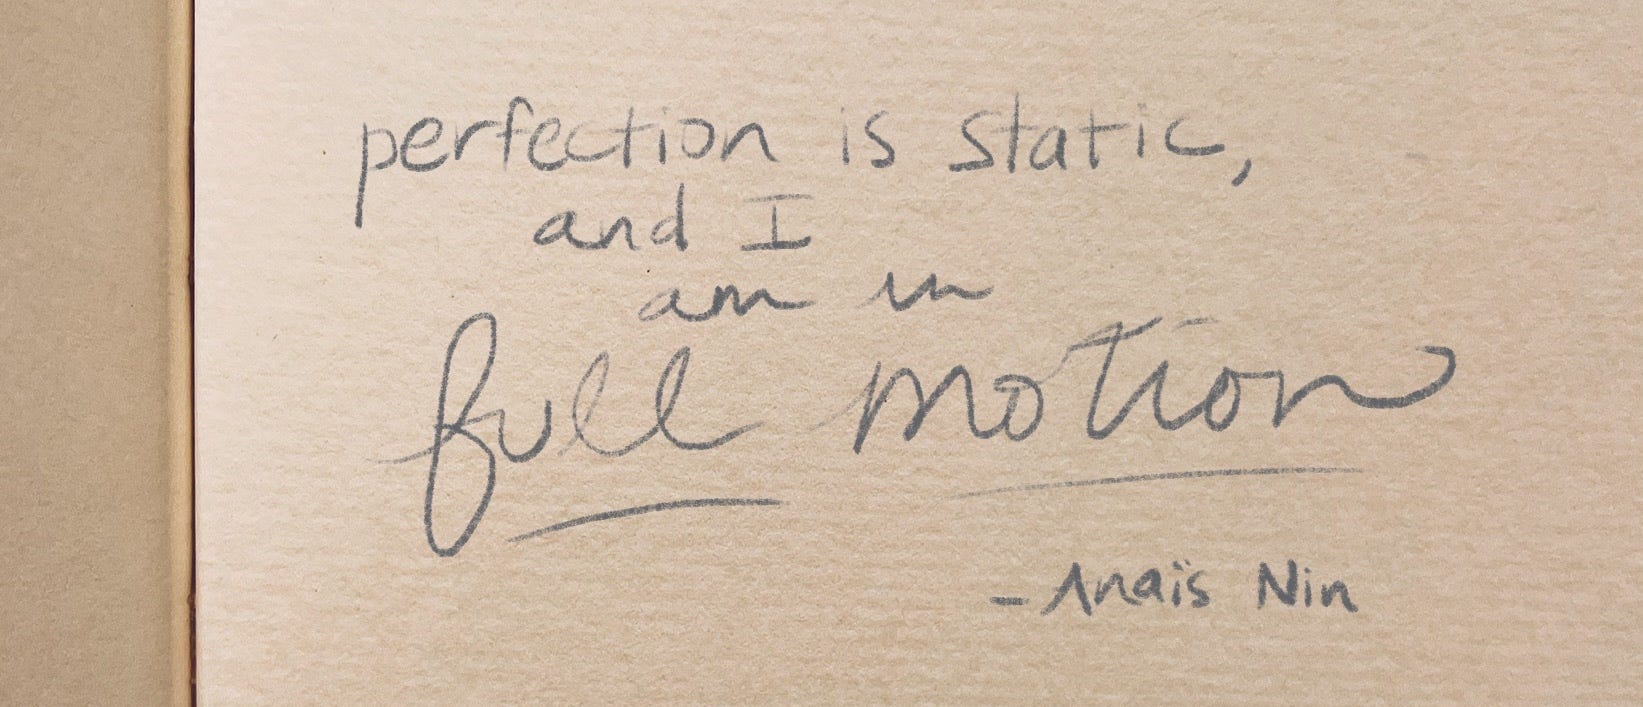 perfection is static,
and I
am in
full motion
- Anaïs Nin